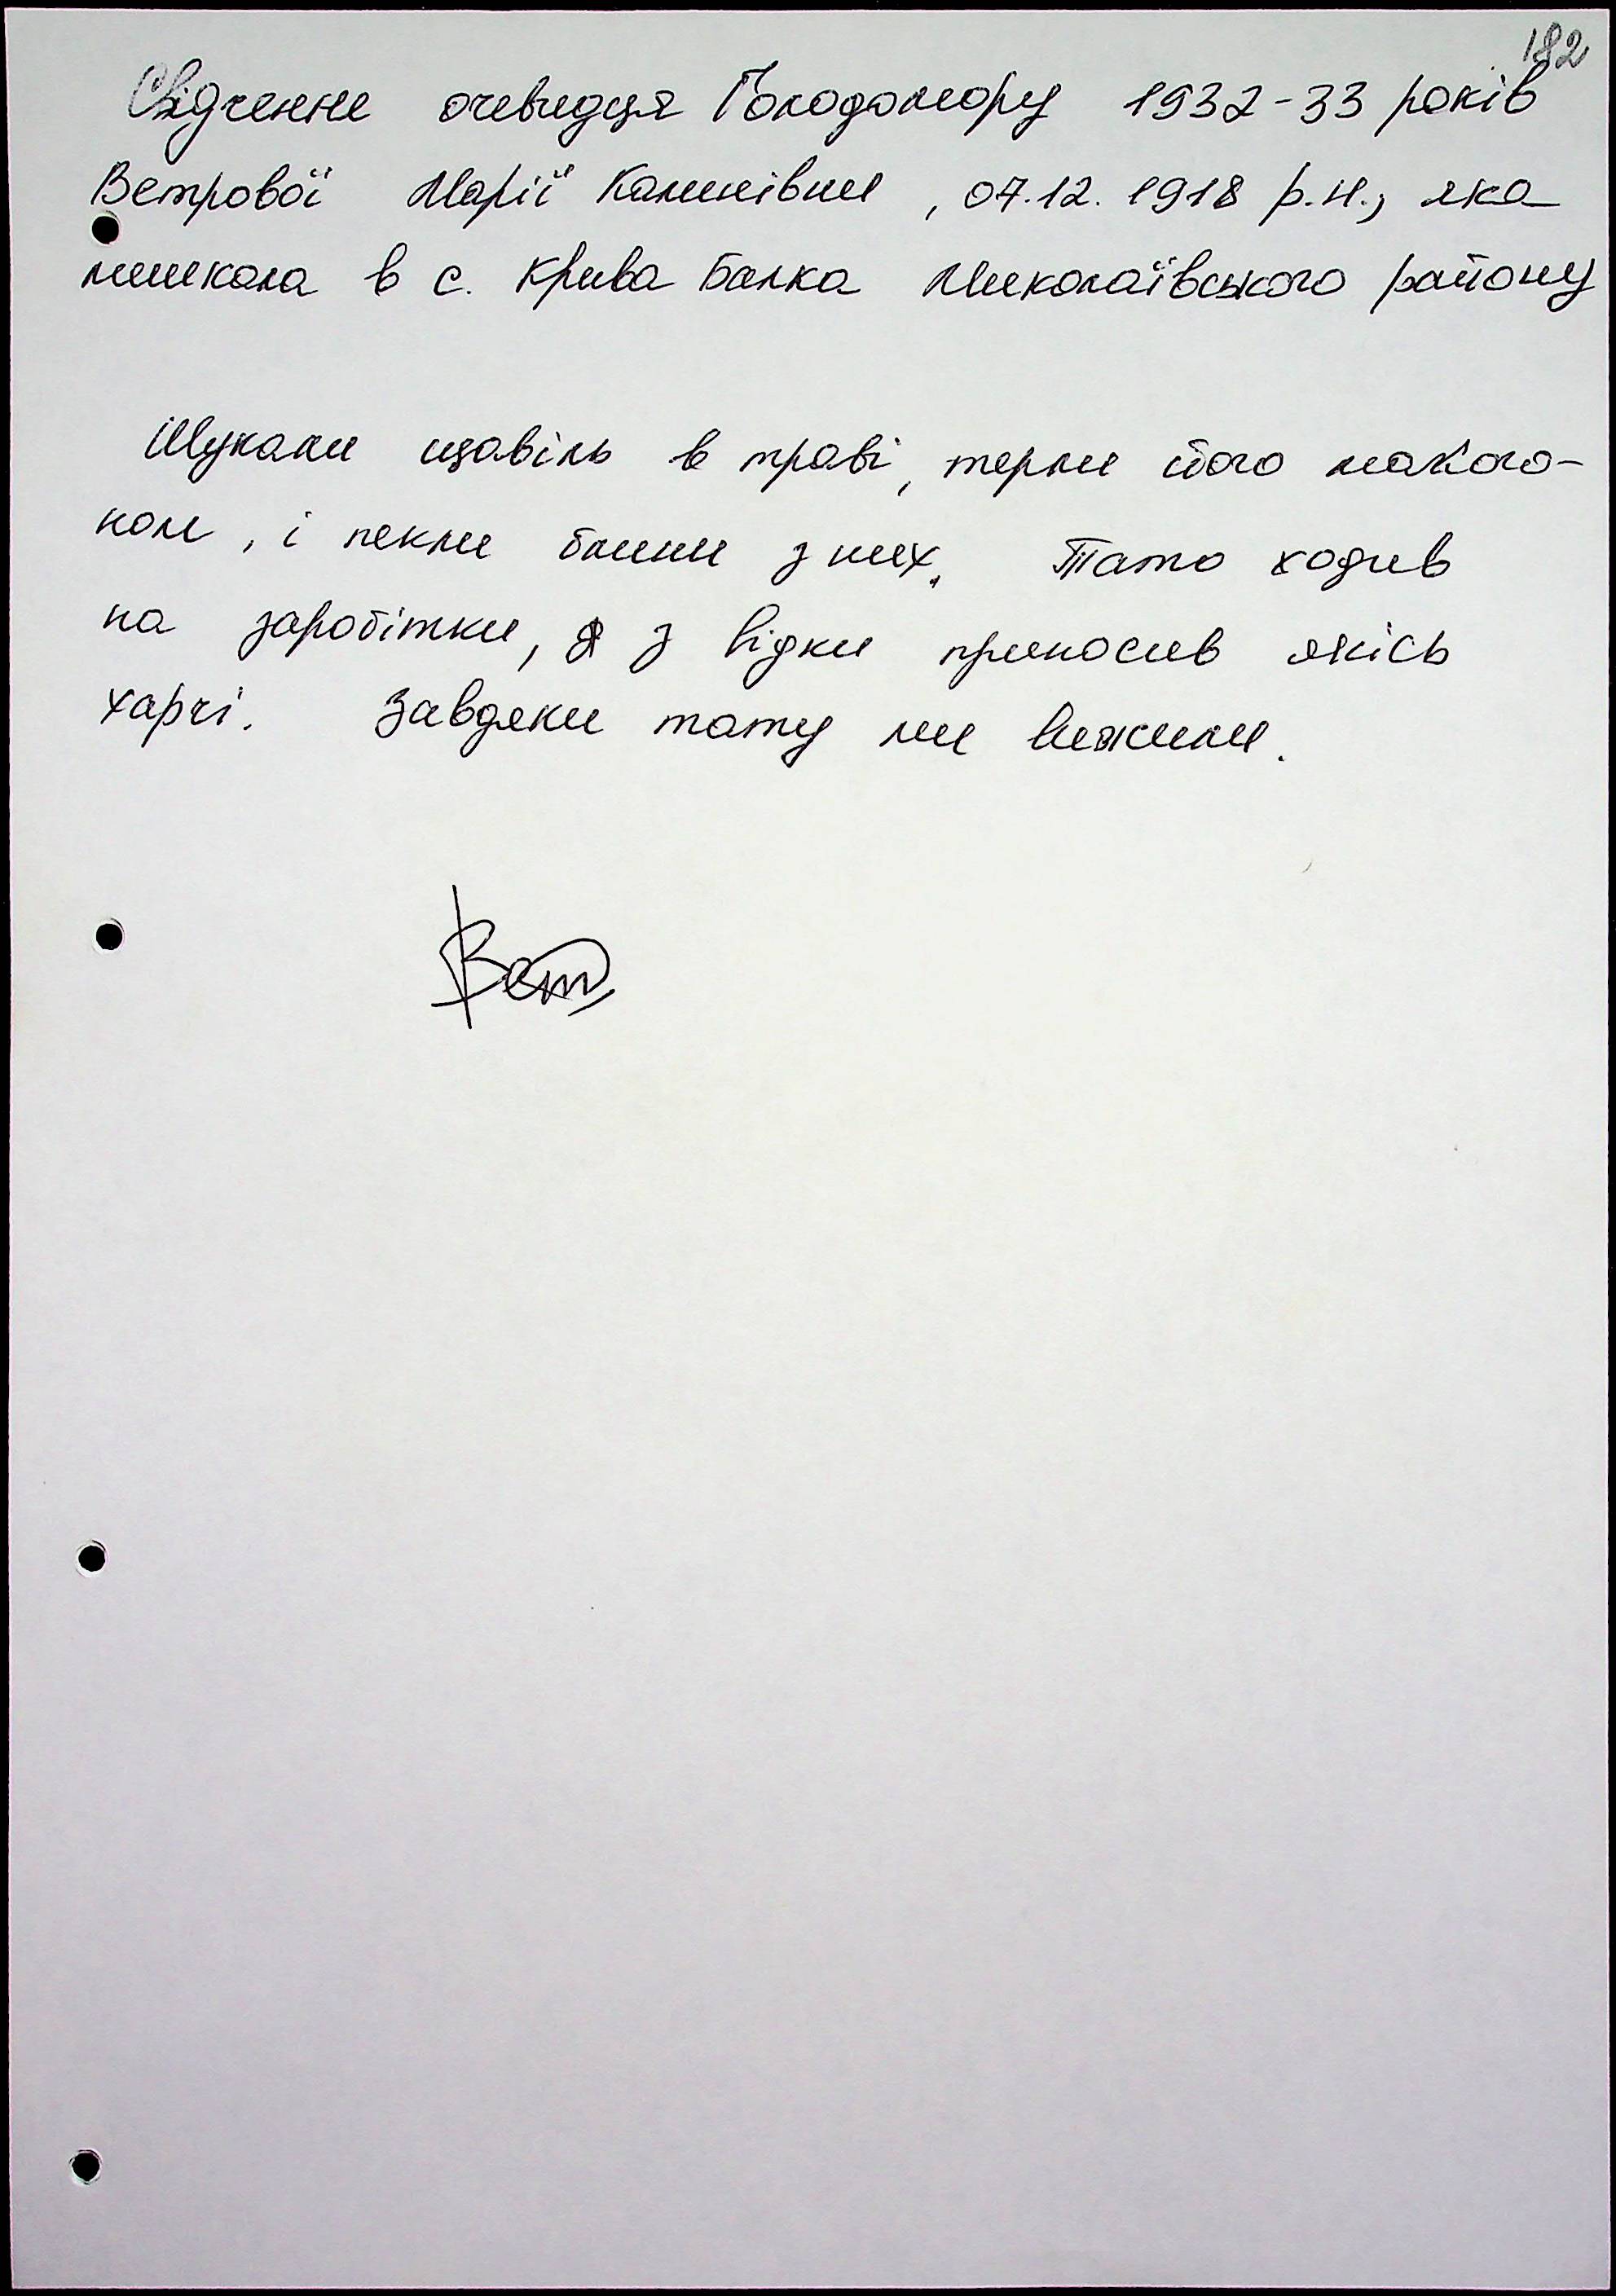 182
Свідчення очевидця Голодомору 1932-33 років
Ветрової Марії Калинівни, 07.12.1918 р.н., яка
мешкала в с. Крива Балка Миколаївського району
Шукали щавіль в траві, терли його макого-
ном, і пекли блини з них. Тато ходив
на заробітки, я з відки приносив якісь
харчі. Завдяки тату ми вижили.
Вет